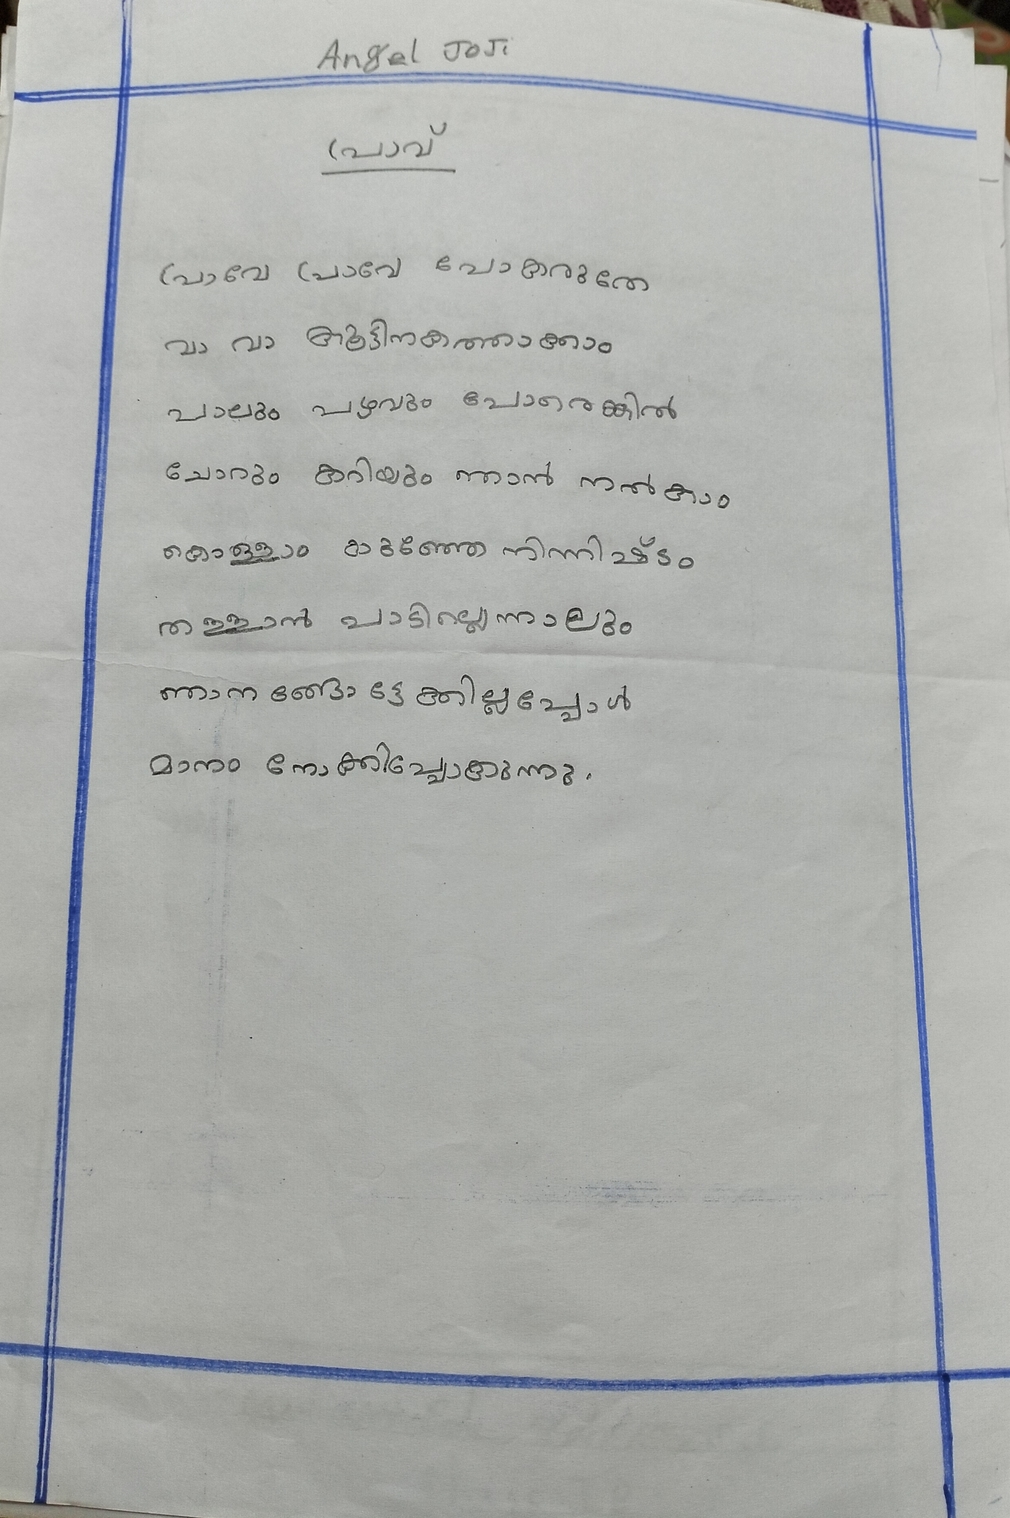 Angel JoJi
പ്രാവ്
പ്രാവേ പ്രാവേ പോകരുതേ
വാ വാ കൂട്ടിനകത്താക്കാം
പാലും പഴവും പോരെങ്കിൽ
ചോറും കറിയും ഞാൻ നൽകാം
കൊള്ളാം കുഞ്ഞേ നിന്നിഷ്ടം
തള്ളാൻ പാടില്ലെന്നാലും
ഞാനങ്ങോട്ടേക്കില്ലപ്പോൾ
മാനം നോക്കിപ്പോകുന്നു.